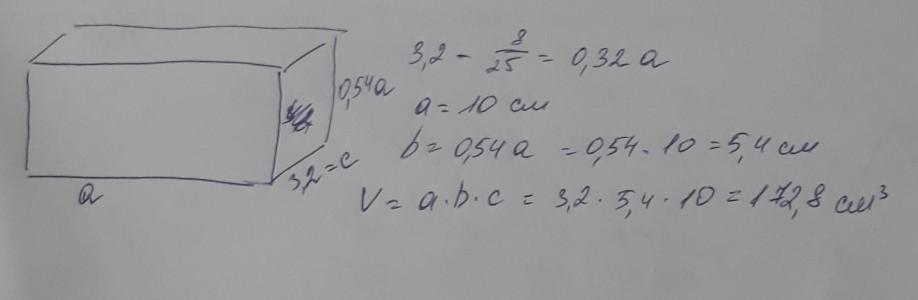 3,2 - 8/25 = 0,32 a
0,54a
a = 10 см
b = 0,54 a = 0,54 · 10 = 5,4 см
3,2 = c
a
V = a · b · c = 3,2 · 5,4 · 10 = 172,8 см³